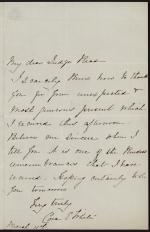 My dear Judge
I scarcely know how to thank
you for your unexpected &
most generous present which
I received this afternoon.
Believe me sincere when I
tell you it is one of the kindest
remembrances that I have
received. Hoping certainly to see
you tomorrow
Very truly
March